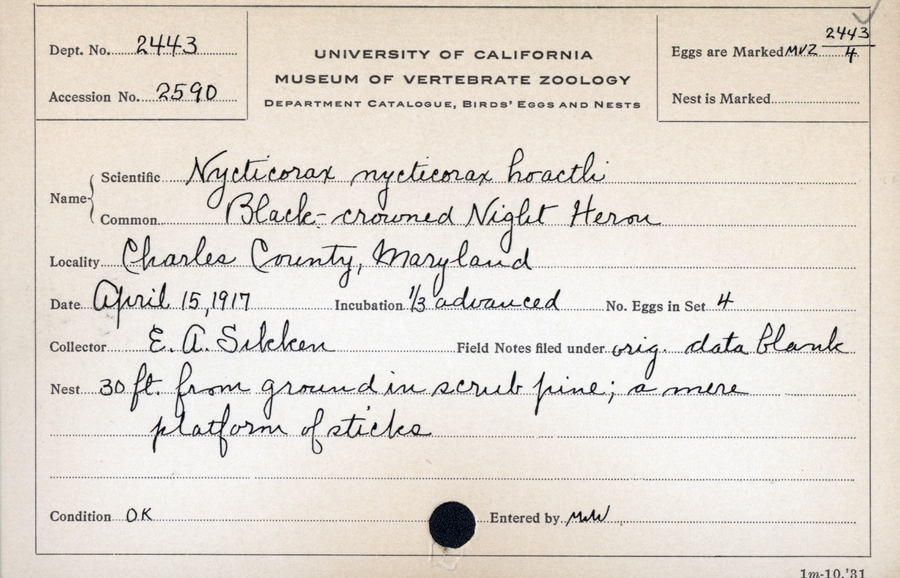 Dept. No. 2443
Accession No. 2590
UNIVERSITY OF CALIFORNIA
MUSEUM OF VERTEBRATE ZOOLOGY
DEPARTMENT CATALOGUE, BIRDS' EGGS AND NESTS
Eggs are Marked MVZ 2443/4
Nest is Marked
Name { Scientific Nycticorax nycticorax hoactli
Common Black-crowned Night Heron
Locality Charles County, Maryland
Date April 15, 1917 Incubation 1/3 advanced No. Eggs in Set 4
Collector E. A. Sikken Field Notes filed under orig. data blank
Nest 30 ft. from ground in scrub pine; a mere
platform of sticks
Condition OK Entered by
1m-10,'31